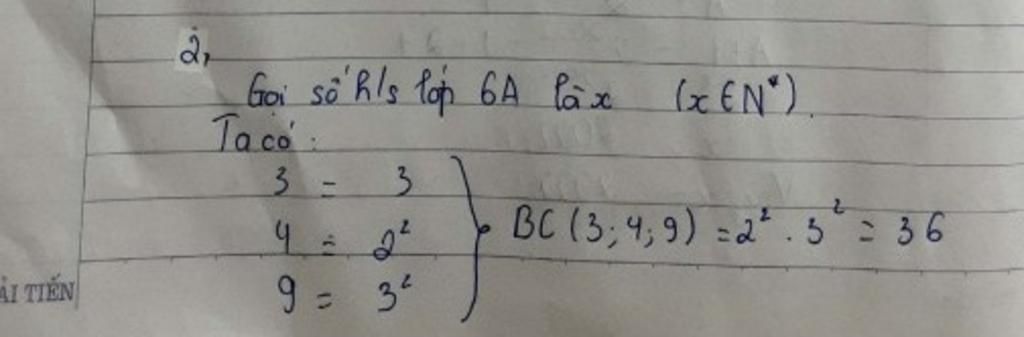 2,
Gọi số h/s lớp 6A là x (x ∈ N*).
Ta có:
3 = 3
4 = 2²
9 = 3²
BC (3; 4; 9) = 2² . 3² = 36
ẢI TIẾN